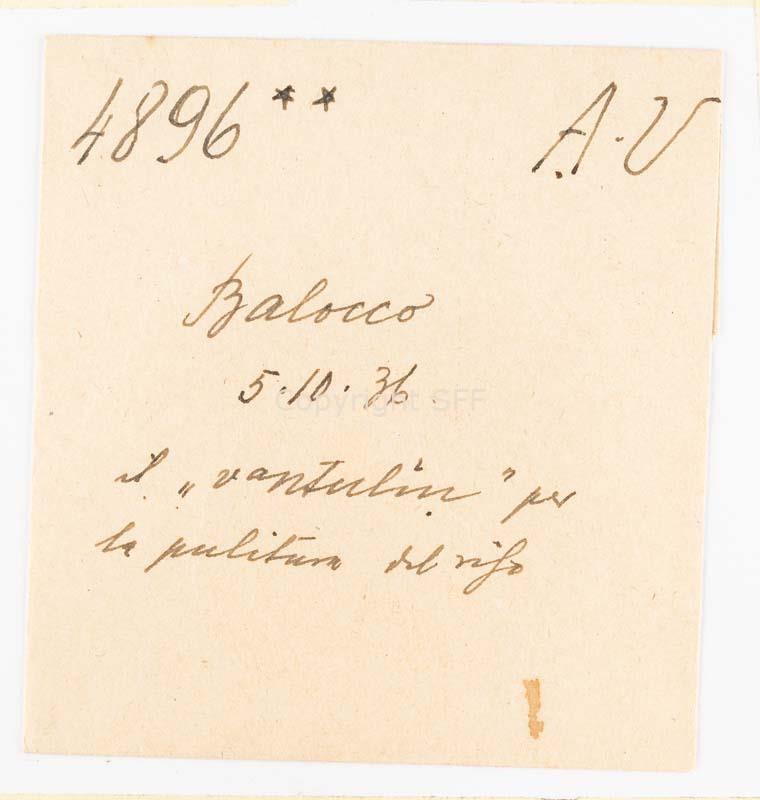 4896** A.V
Balocco
5.10.36.
Copyright SFF
il „vantulin” per
la pulitura del riso